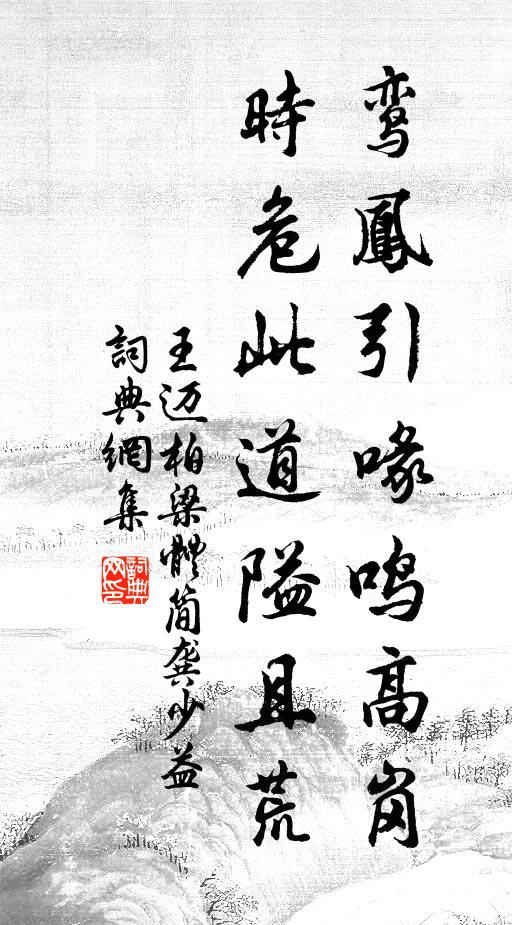 鸾鳳引喙鸣高岗
時危此道隘且荒
王迈柏梁體简龚少益
詞典網集
詞典網印